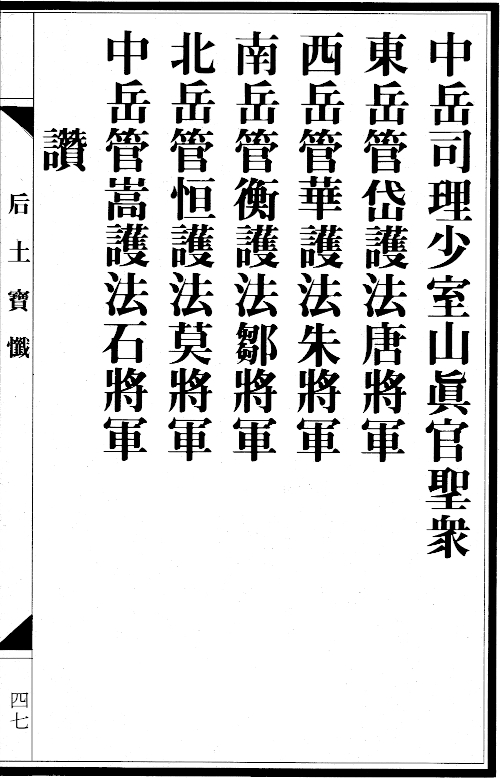 中岳司理少室山眞官聖衆
東岳管岱護法唐將軍
西岳管華護法朱將軍
南岳管衡護法鄒將軍
北岳管恒護法莫將軍
中岳管嵩護法石將軍
讚
后土寶懺
四七